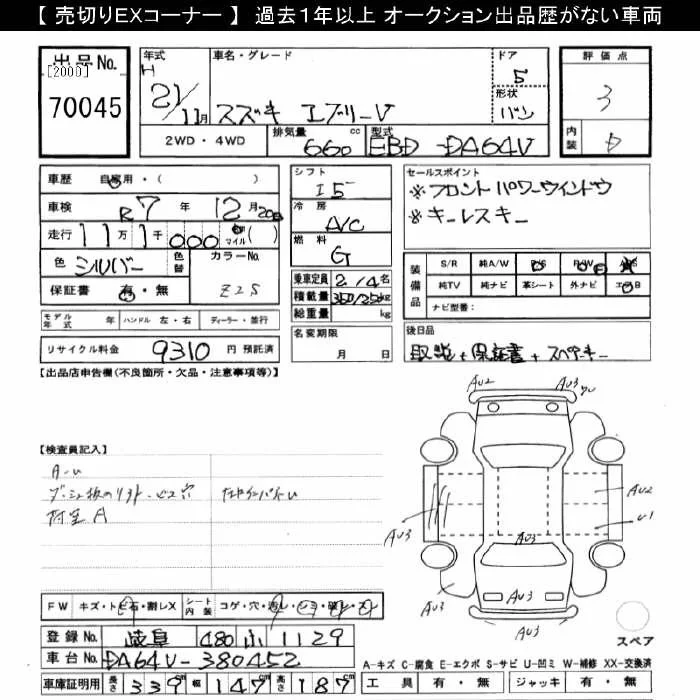 【 売切りEXコーナー 】 過去1年以上 オークション出品歴がない車両
出品No.
[2000]
70045
年式 H 21/11月
車名・グレード スズキ エブリーV
ドア 5
形状 バン
評価点 3
内装 D
2WD・4WD
排気量 660 cc
型式 EBD-DA64V
車歴 自家用・( )
車検 R7 年 12月 20日
走行 11万 1千 000 km マイル ( )
色 シルバー 色替
カラーNo. Z2S
保証書 有・無
シフト I5
冷房 A/C
燃料 G
乗車定員 2/4 名
積載量 350/250 kg
総重量 kg
セールスポイント
※フロントパワーウインドウ
※キーレスキー
装備品
S/R 純A/W P/S P/W A/S
純TV 純ナビ 革シート 外ナビ エアB
ナビ型番:
モデル年式 年 ハンドル 左・右 ディーラー・並行
リサイクル料金 9310 円 預託済
名変期限 月 日
後日品
取説+保証書+スペアキー
【出品店申告欄(不良箇所・欠品・注意事項等)】
【検査員記入】
A-U
AU2
AU3
AU3
AU2
U1
AU3
AU3
AU3
FW キズ・トビ石・割レX シート内装 コゲ・穴・汚レ・シミ・破レ・スレ
登録No. 岐阜 480 ふ 1129
車台No. DA64V-380452
車庫証明用 長さ 339 cm 幅 147 cm 高さ 187 cm
スペア
A-キズ C-腐食 E-エクボ S-サビ U-凹ミ W-補修 XX-交換済
工具 有・無 ジャッキ 有・無